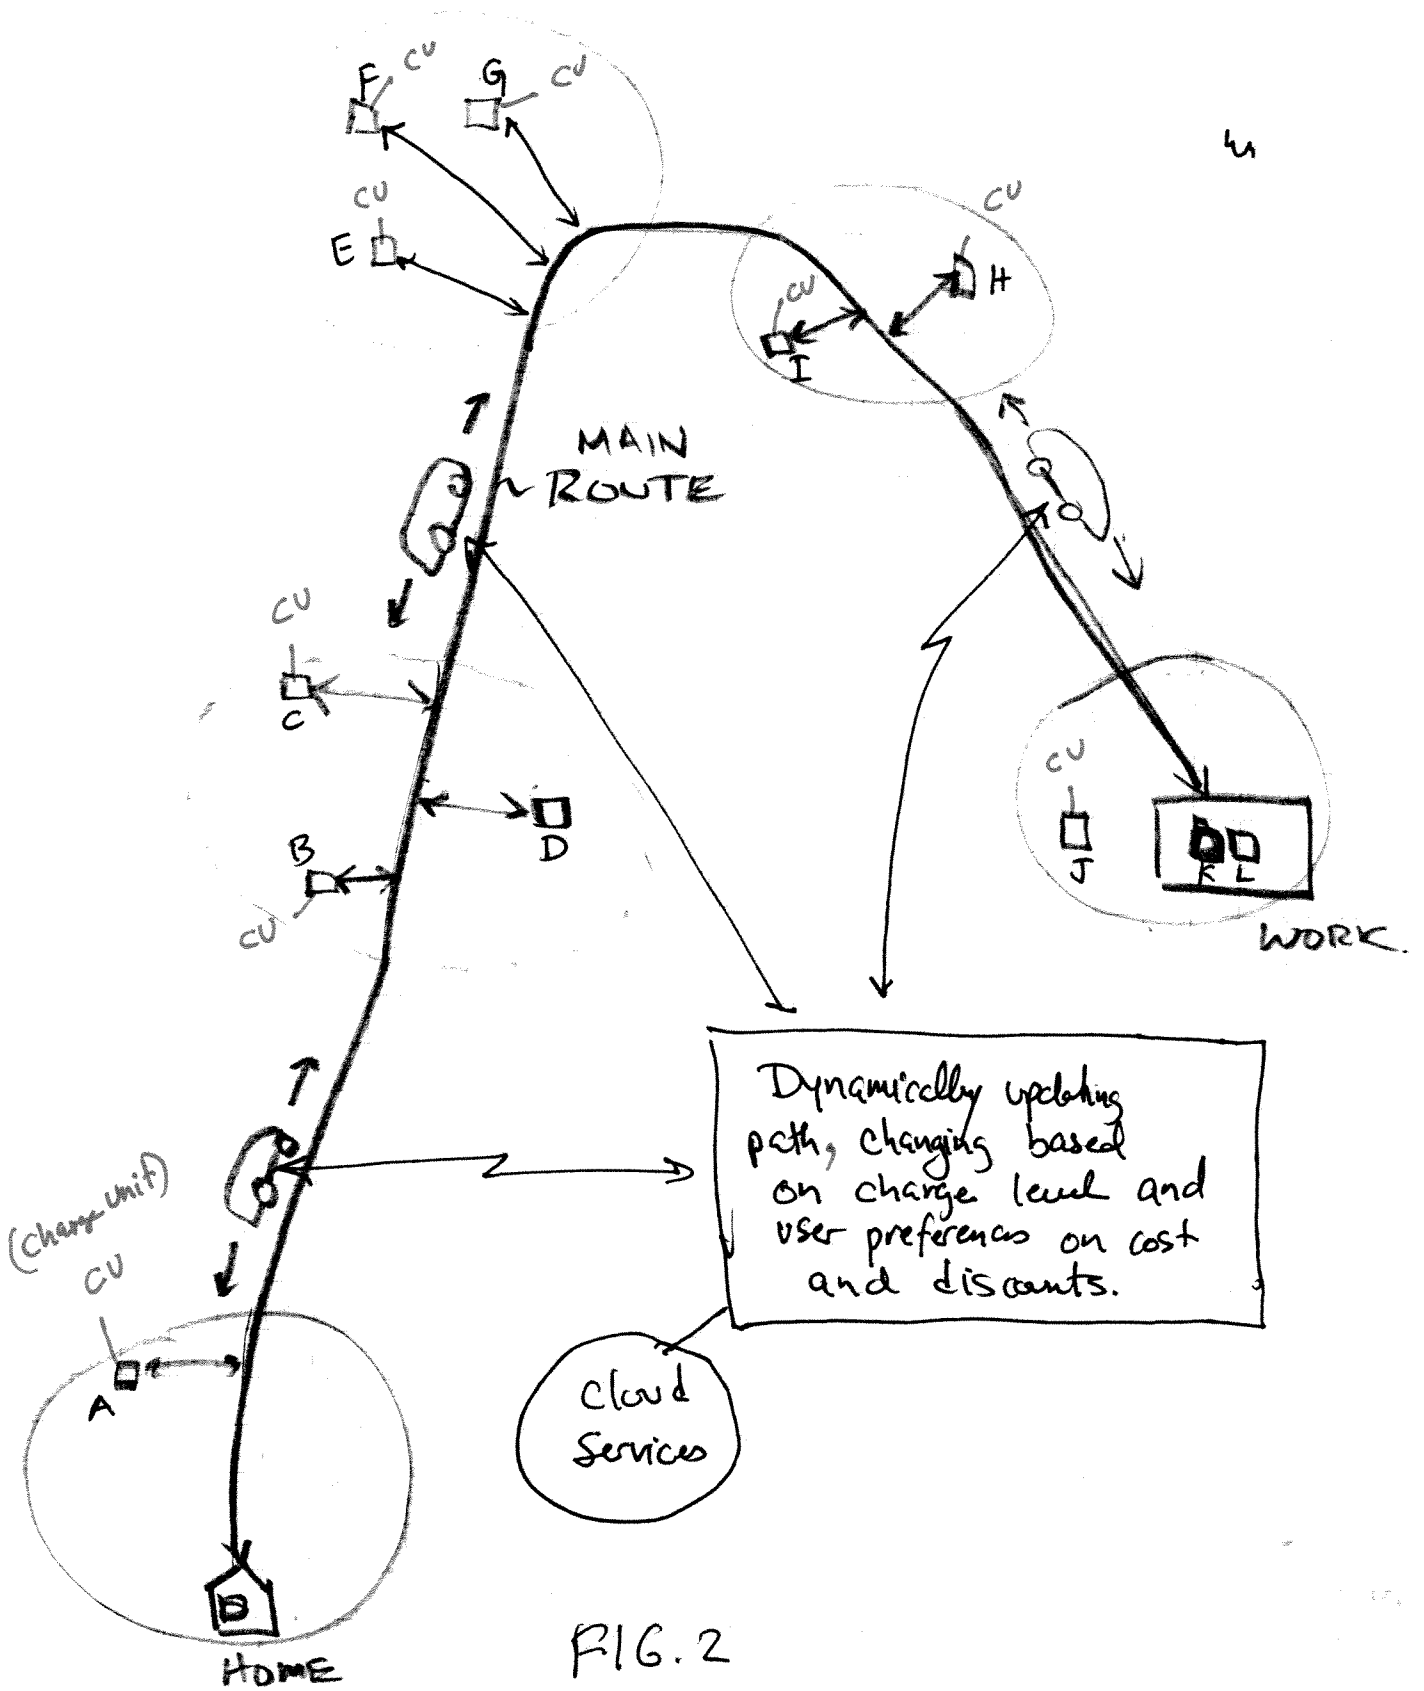 F
CU
G
CU
CU
E
CU
H
CU
I
MAIN
ROUTE
CU
C
D
B
CU
CU
J
K
L
WORK.
Dynamically updating
path, changing based
on charge level and
user preferences on cost
and discounts.
(charge unit)
CU
A
Cloud
Services
HOME
FIG. 2